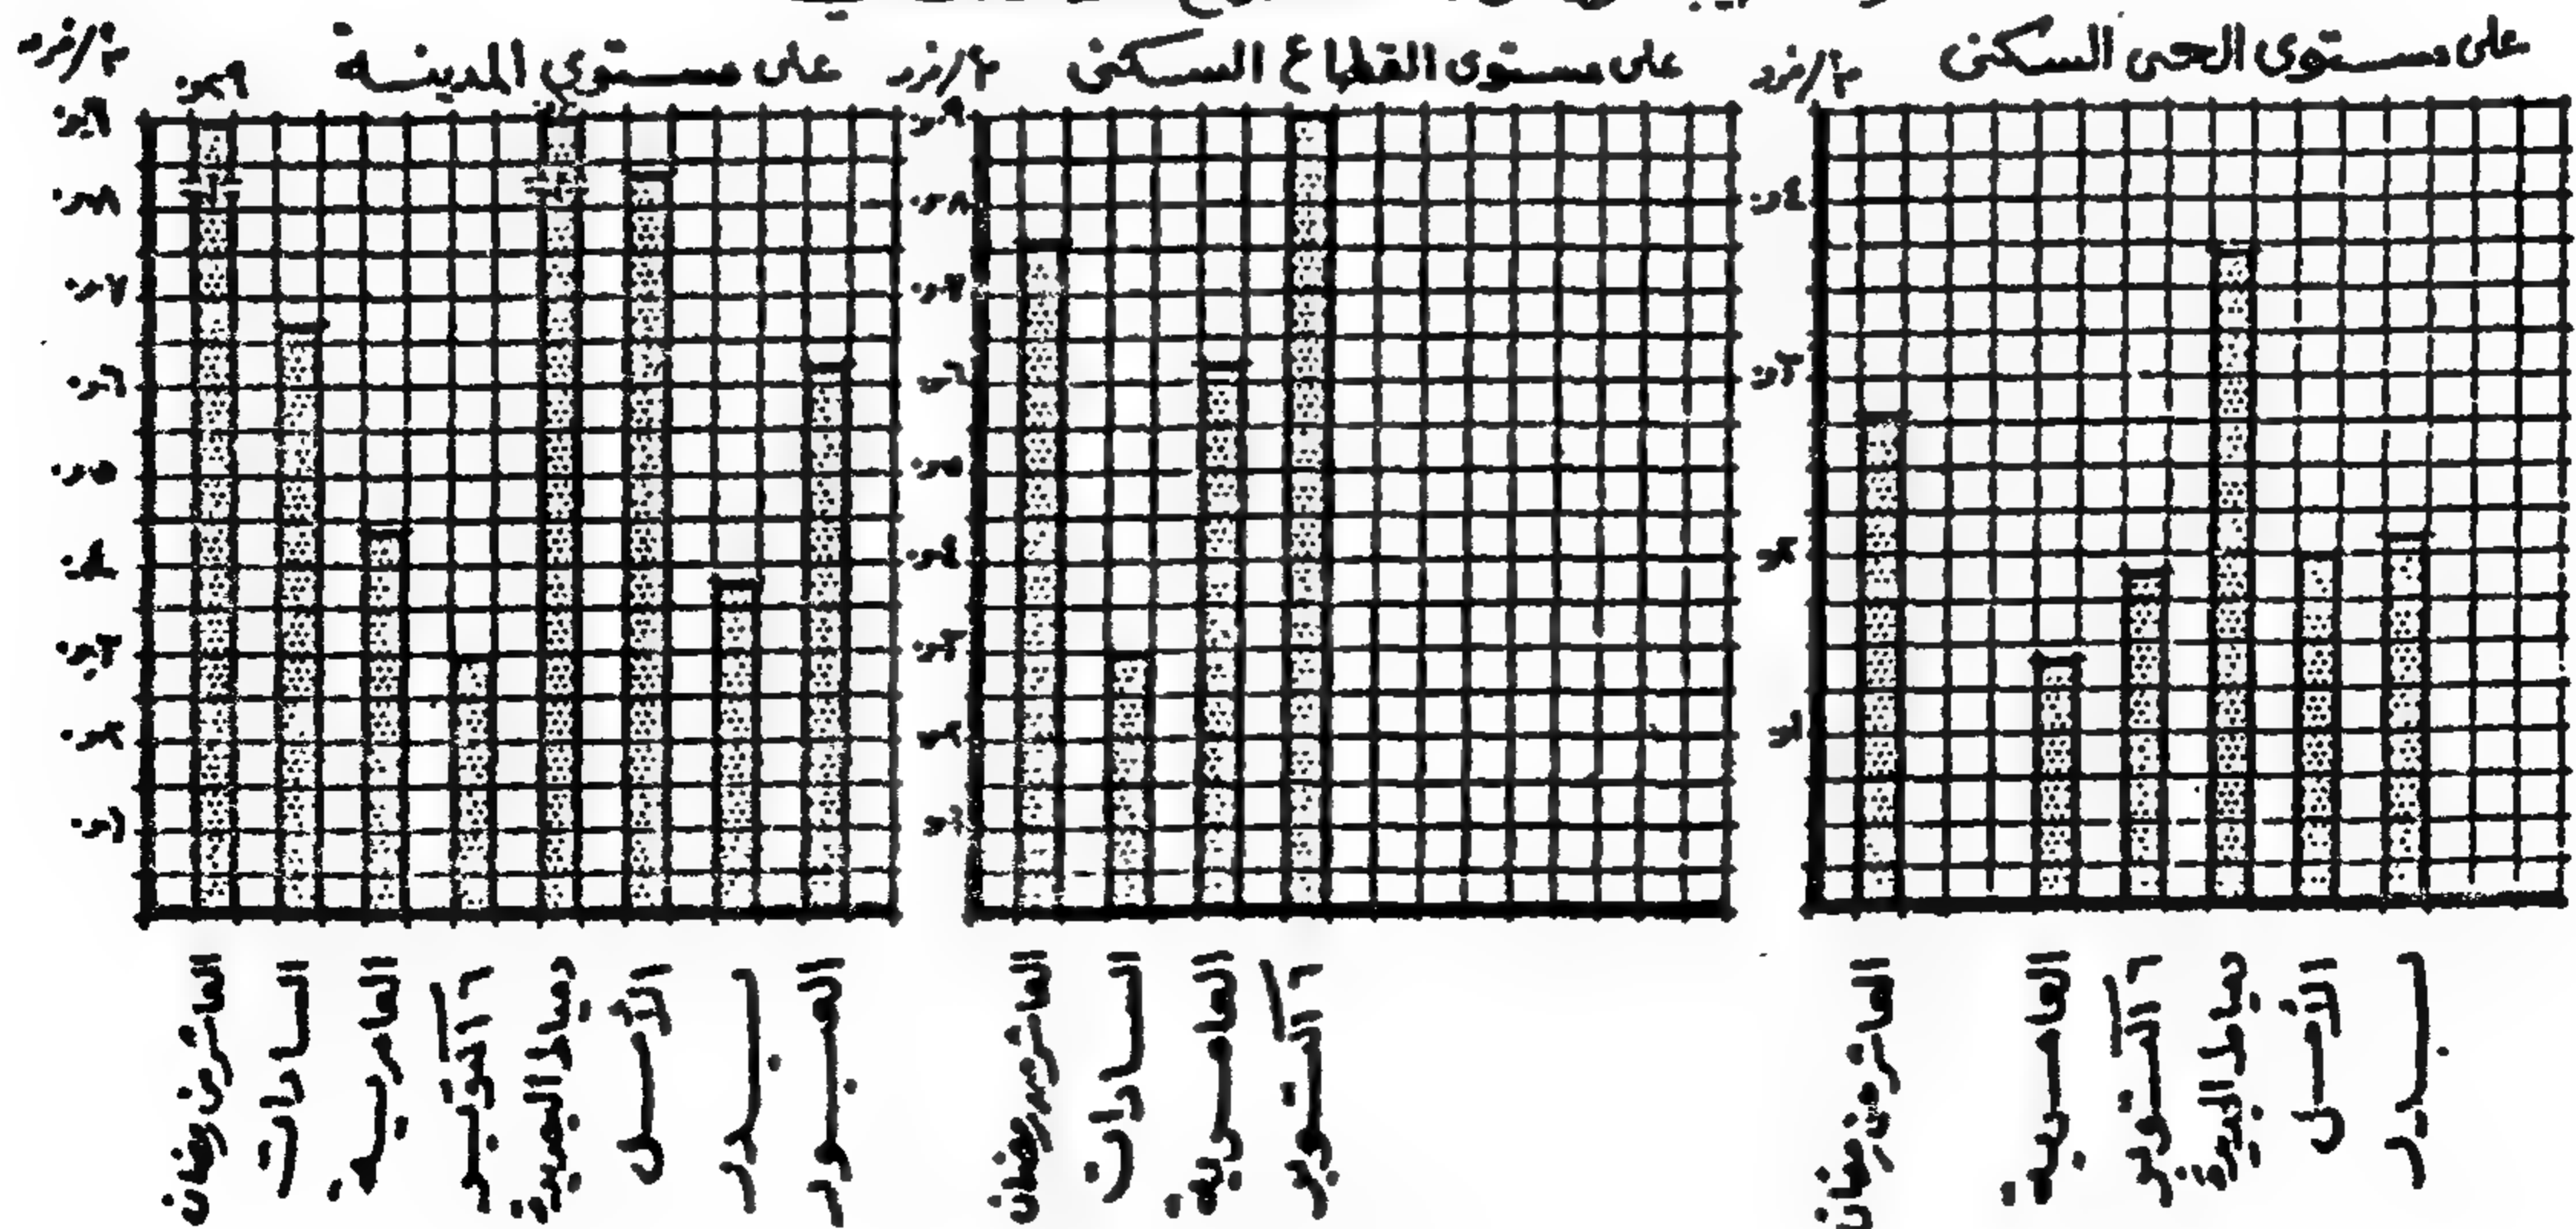 على مستوى الحى السكنى
م٢/فرد
٠,٤
٠,٣
٠,٢
٠,١
العاشر من رمضان
العامرية
٦ أكتوبر
دمياط الجديدة
الأمل
بدر
على مستوى القطاع السكنى
م٢/فرد
٠,٩
٠,٨
٠,٧
٠,٦
٠,٥
٠,٤
٠,٣
٠,٢
٠,١
العاشر من رمضان
السادات
العامرية
٦ أكتوبر
على مستوى المدينة
م٢/فرد
٠,٩
٠,٨
٠,٧
٠,٦
٠,٥
٠,٤
٠,٣
٠,٢
٠,١
العاشر من رمضان
السادات
العامرية
٦ أكتوبر
دمياط الجديدة
الأمل
بدر
العبور